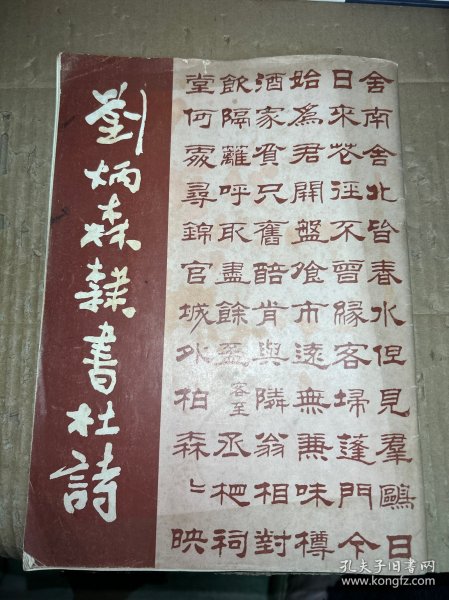 劉炳森隸書杜詩
舍南舍北皆春水但見羣鷗日
日來花徑不曾緣客埽蓬門今
始爲君開盤飧市遠無兼味樽
酒家貧只舊醅肯與隣翁相對
飲隔籬呼取盡餘盃客至丞相祠
堂何處尋錦官城外柏森〻映
孔夫子旧书网
kongfz.com